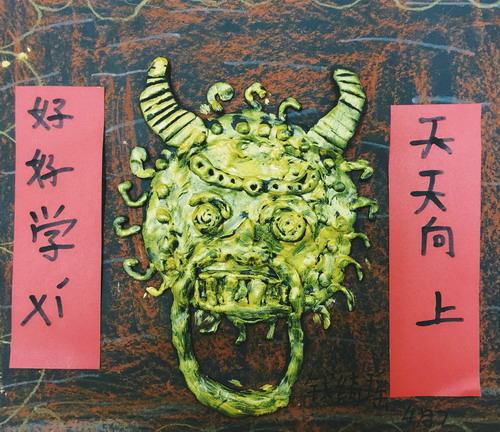 好好学xí
天天向上